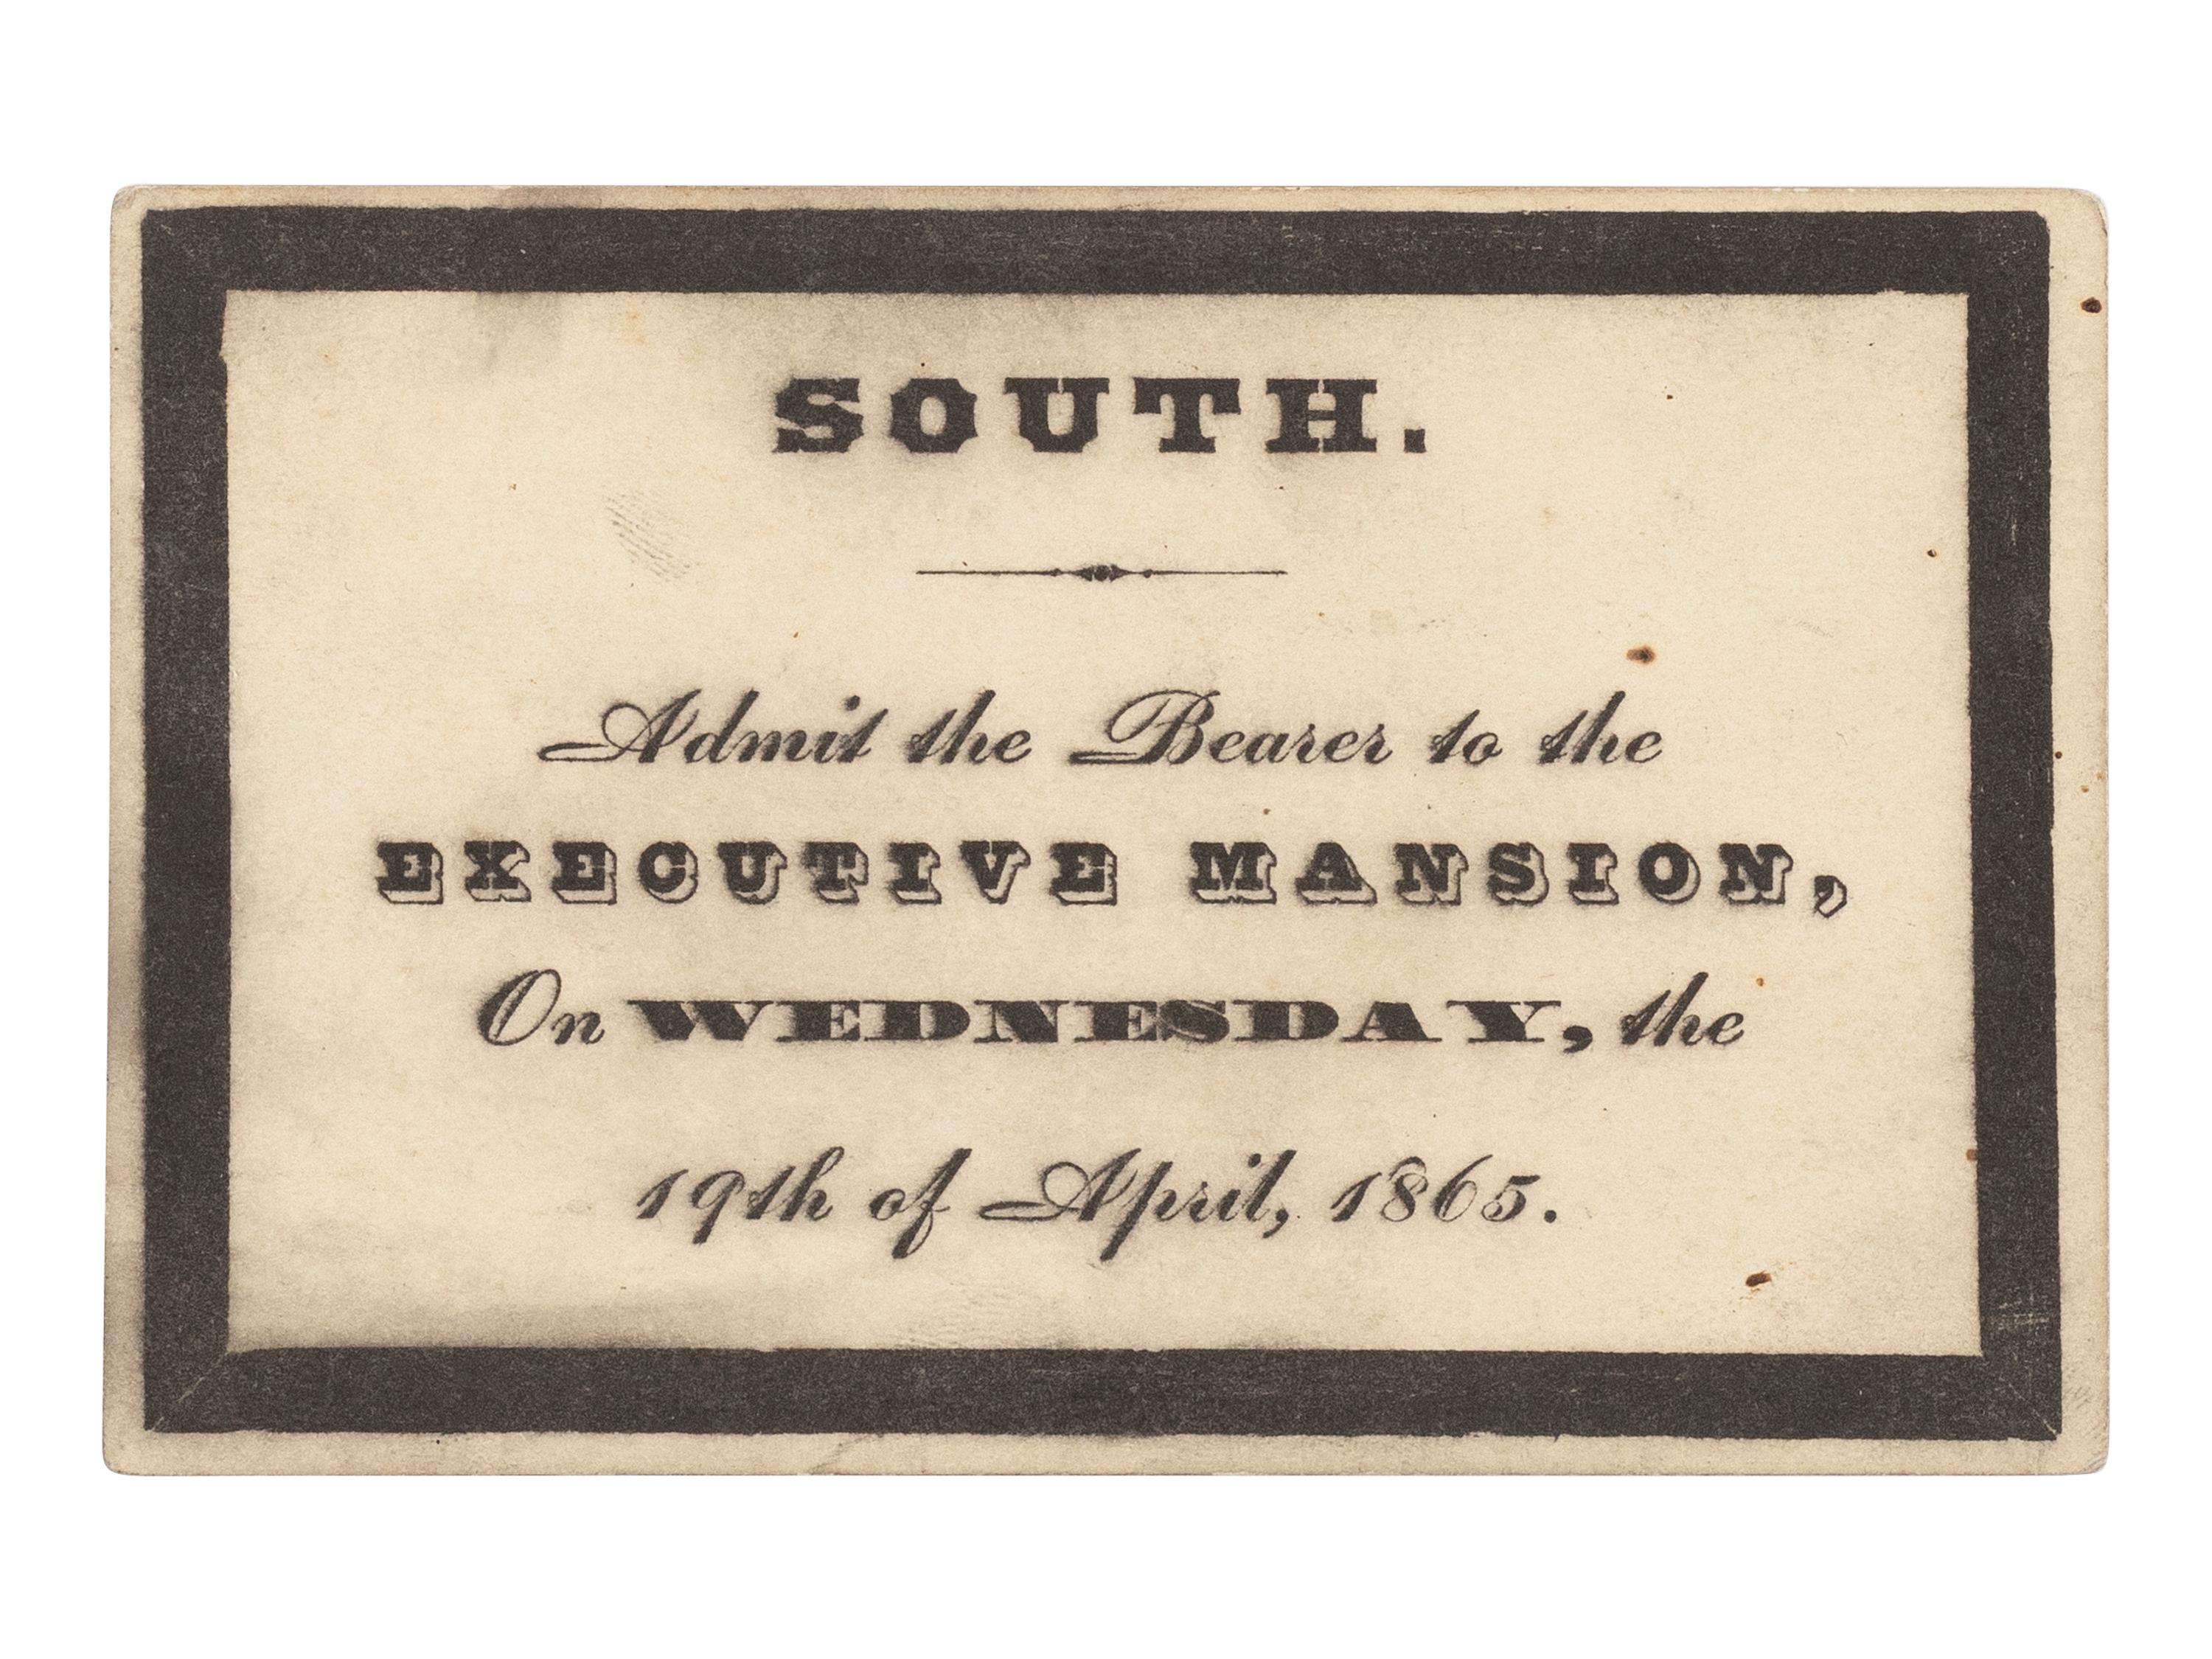 SOUTH.
Admit the Bearer to the
EXECUTIVE MANSION,
On WEDNESDAY, the
19th of April, 1865.